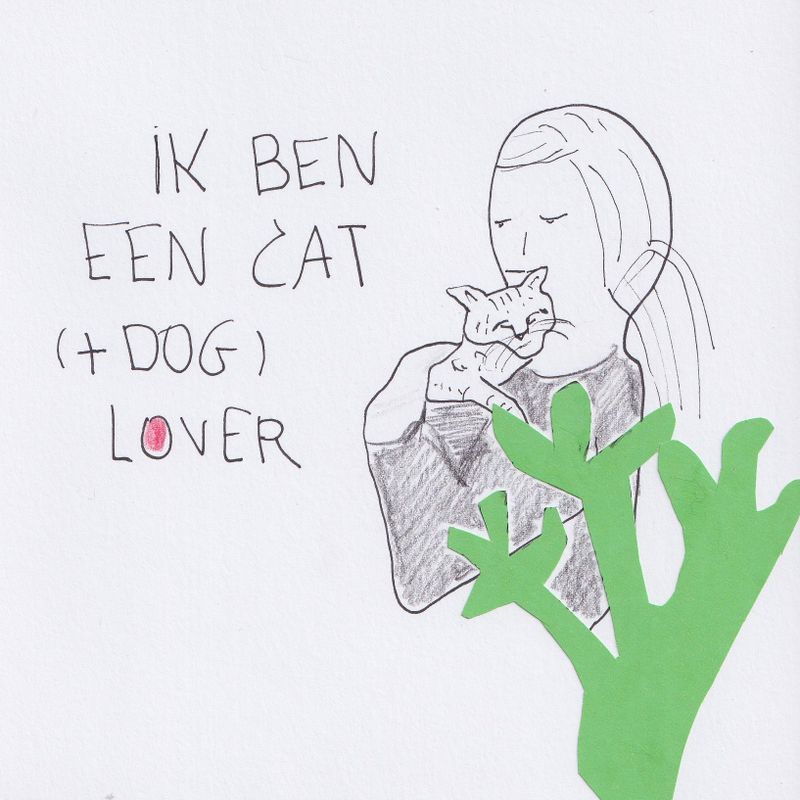 iK BEN
EEN CAT
(+ DOG)
LOVER